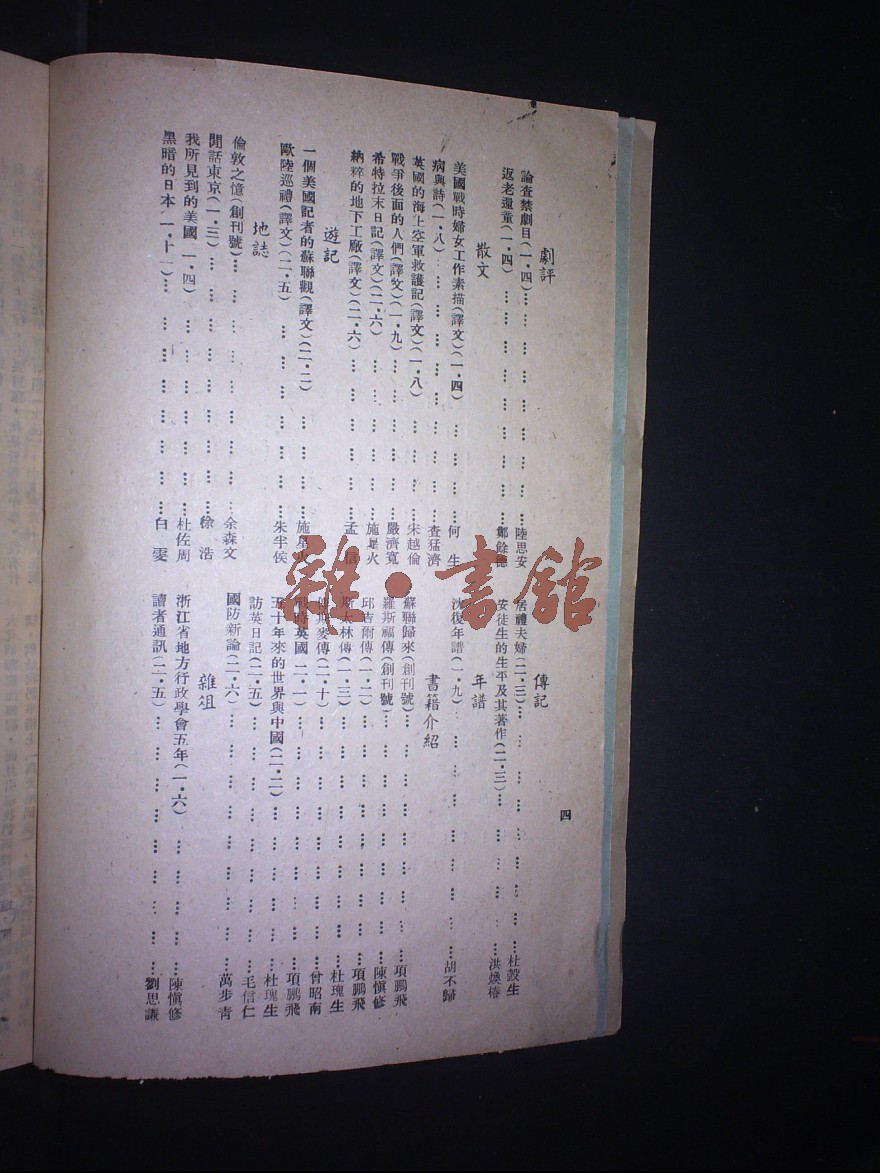 劇評
論査禁劇目(一·四)…………陸思安
返老還童(一·四)…………鄭餘德
散文
美國戰時婦女工作素描(譯文)(一·四)…………何生
病與詩(一·八)…………查猛濟
英國的海上空軍救護記(譯文)(一·八)…………宋越倫
戰爭後面的人們(譯文)(一·九)…………嚴濟寬
希特拉末日記(譯文)(二·六)…………施星火
納粹的地下工廠(譯文)(二·六)…………孟信
遊記
一個美國記者的蘇聯觀(譯文)(二·二)…………施星火
歐陸巡禮(譯文)(二·五)…………朱半侯
地誌
倫敦之憶(創刊號)…………余森文
閒話東京(一·三)…………徐浩
我所見到的美國(一·四)…………杜佐周
黑暗的日本(一·十一)…………白雯
傳記
居禮夫婦(二·三)…………杜毅生
安徒生的生平及其著作(二·三)…………洪煥椿
年譜
沈復年譜(一·九)…………胡不歸
書籍介紹
蘇聯歸來(創刊號)…………項鵬飛
羅斯福傳(創刊號)…………陳愼修
邱吉爾傳(一·二)…………項鵬飛
斯太林傳(一·三)…………杜瑰生
傳斯麥傳(二·十)…………曾昭南
戰時英國(二·一)…………項鵬飛
五十年來的世界與中國(二·二)…………杜瑰生
訪英日記(二·五)…………毛信仁
國防新論(二·六)…………萬步青
雜俎
浙江省地方行政學會五年(一·六)…………陳愼修
讀者通訊(二·五)…………劉思謙
四
雜·書館